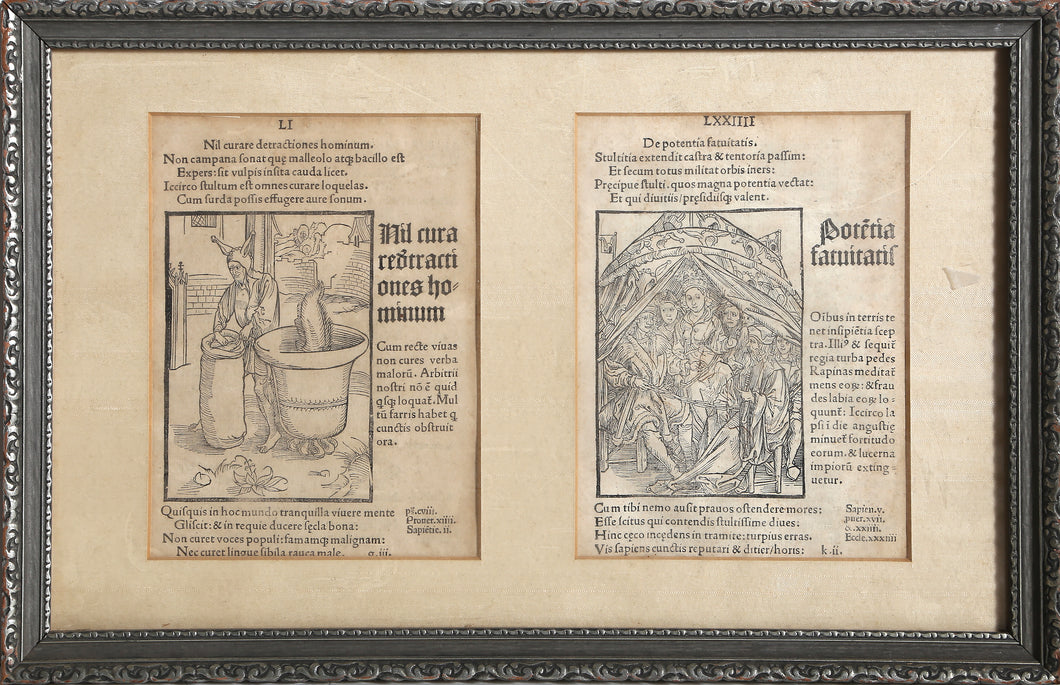 LI
Nil curare detractiones hominum.
Non campana sonat quę malleolo atq; bacillo est
Expers: sit vulpis insita cauda licet.
Iccirco stultum est omnes curare loquelas.
Cum surda possis effugere aure sonum.
Nil cura
redtracti
ones ho-
minum
Cum recte viuas
non cures verba
malorū. Arbitrii
nostri nō ē quid
qsq; loquat. Mul
tū farris habet q
cunctis obstruit
ora.
Quisquis in hoc mundo tranquilla viuere mente
Gliscit: & in requie ducere sęcla bona:
Non curet voces populi: famamq; malignam:
Nec curet lingue sibila rauca male. g.iii.
ps̄.cviii.
Prouer.xiiii.
Sapiētie.ii.
LXXIIII
De potentia fatuitatis.
Stultitia extendit castra & tentoria passim:
Et secum totus militat orbis iners:
Pręcipue stulti. quos magna potentia vectat:
Et qui diuitiis/pręsidiisq; valent.
Potētia
fatuitatis
Oībus in terris te
net insipiētia scep
tra. Illi⁹ & sequit̄
regia turba pedes
Rapinas meditat̄
mens eoꝝ: & frau
des labia eoꝝ lo-
quunt̄: Iccirco la
psi ī die angustię
minuet̄ fortitudo
eorum. & lucerna
impiorū exting-
uetur.
Cum tibi nemo ausit prauos ostendere mores:
Esse scitus qui contendis stultissime diues:
Hinc cęco incędens in tramite: turpius erras.
Vis sapiens cunctis reputari & ditier/horis: k.ii.
Sapien.v.
puer.xvii.
&.xxiiii.
Eccle.xxxiiii